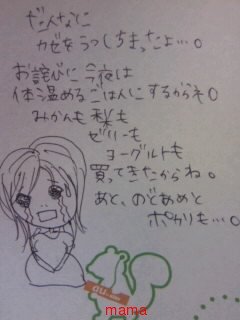 だんなに
カゼをうつしちまったよ…。
お詫びに今夜は
体温めるごはんにするからネ。
みかんも梨も
ゼリーも
ヨーグルトも
買ってきたからね。
あと、のどあめと
ポカリも…。
au
mama